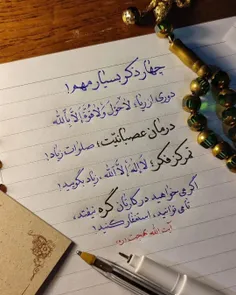 چهار ذکر بسیار مهم!
دوری از ریا، لاحَولَ وَلا قُوَّةَ اِلّا بِاللّه
درمان عصبانیّت، صلوات زیاد!
تمرکز فکر! لا اِلهَ اِلَّا اللّه، زیاد بگویید!
اگر می‌خواهید در کارتان گره نیفتد،
تا می‌توانید، استغفار کنید!
آیت الله بهجت (ره)